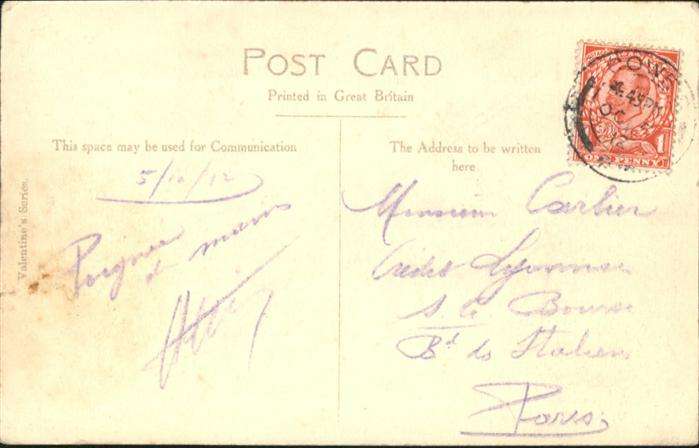 POST CARD
Printed in Great Britain
This space may be used for Communication
The Address to be written
here
Valentine's Series.
5/12/12
Poignée
de mains
Monsieur Carlier
Crédit Lyonnais
Bourse
Bd des Italiens
Paris
1
ONE PENNY